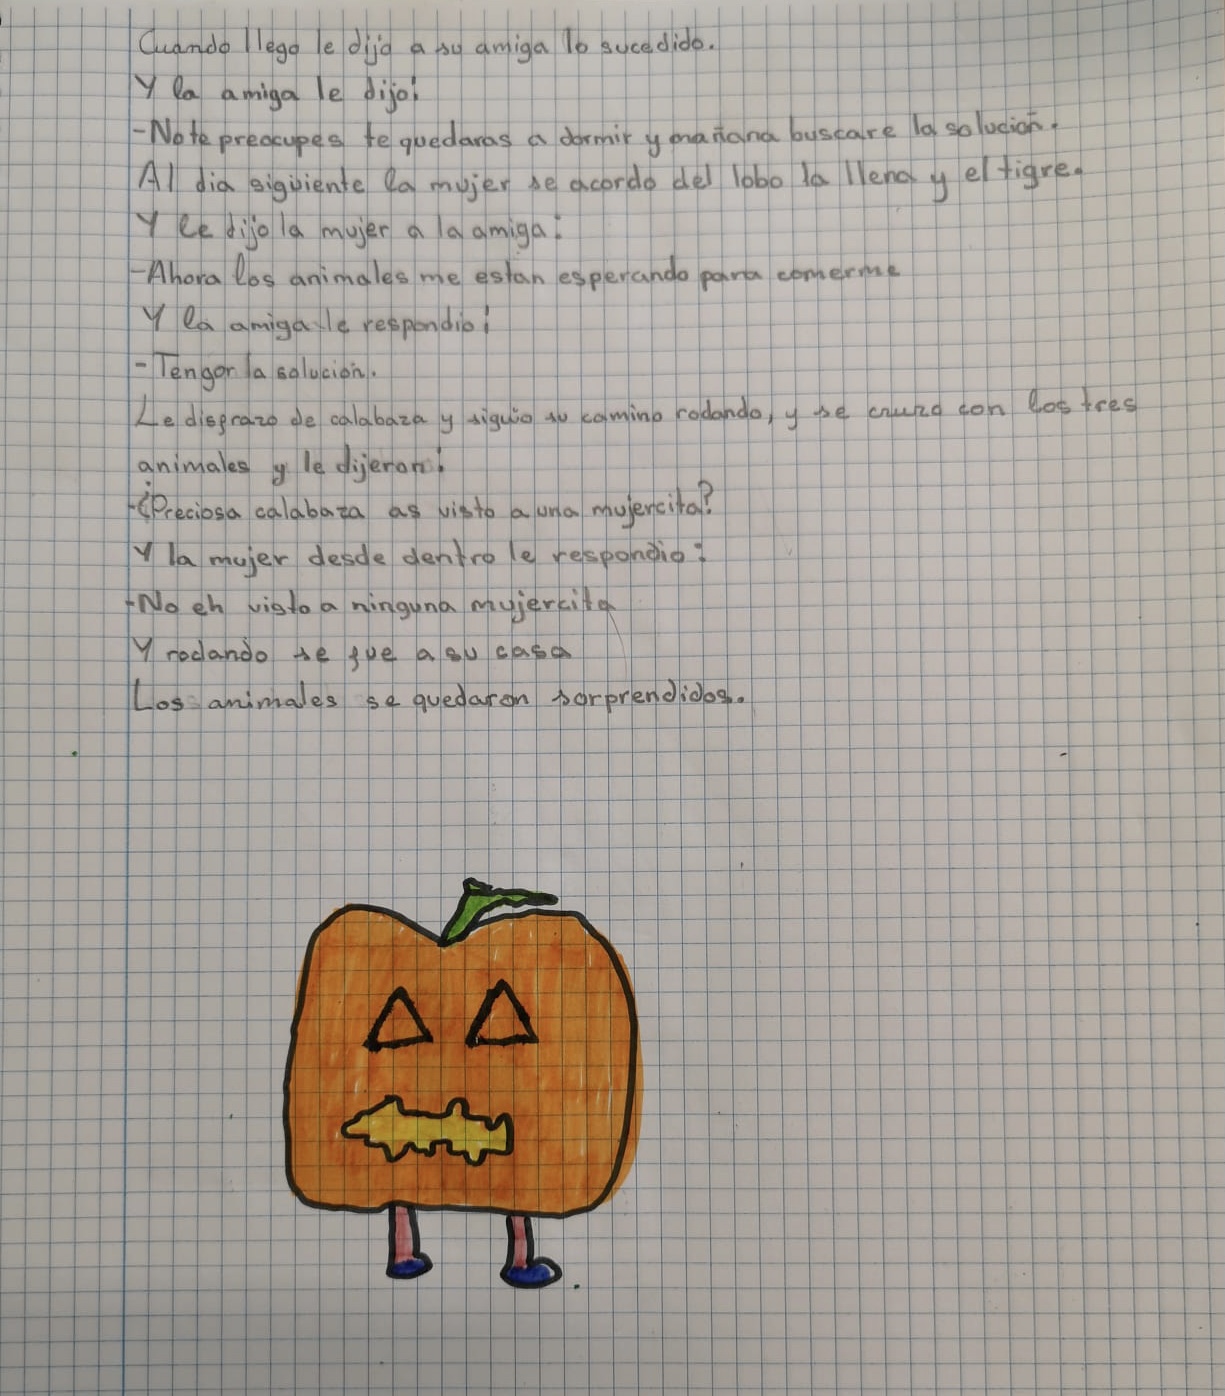 Cuando llego le dijo a su amiga lo sucedido.
Y la amiga le dijo:
-No te preocupes te quedaras a dormir y mañana buscare la solución.
Al dia sigüiente la mujer se acordo del lobo la llena y el tigre.
Y le dijo la mujer a la amiga:
-Ahora los animales me estan esperando para comerme
Y la amiga le respondio:
-Tengor la solución.
Le disfrazo de calabaza y siguio su camino rodando, y se cruzo con los tres
animales y le dijeron:
-¿Preciosa calabaza as visto a una mujercita?
Y la mujer desde dentro le respondio:
-No eh visto a ninguna mujercita
Y rodando se fue a su casa
Los animales se quedaron sorprendidos.